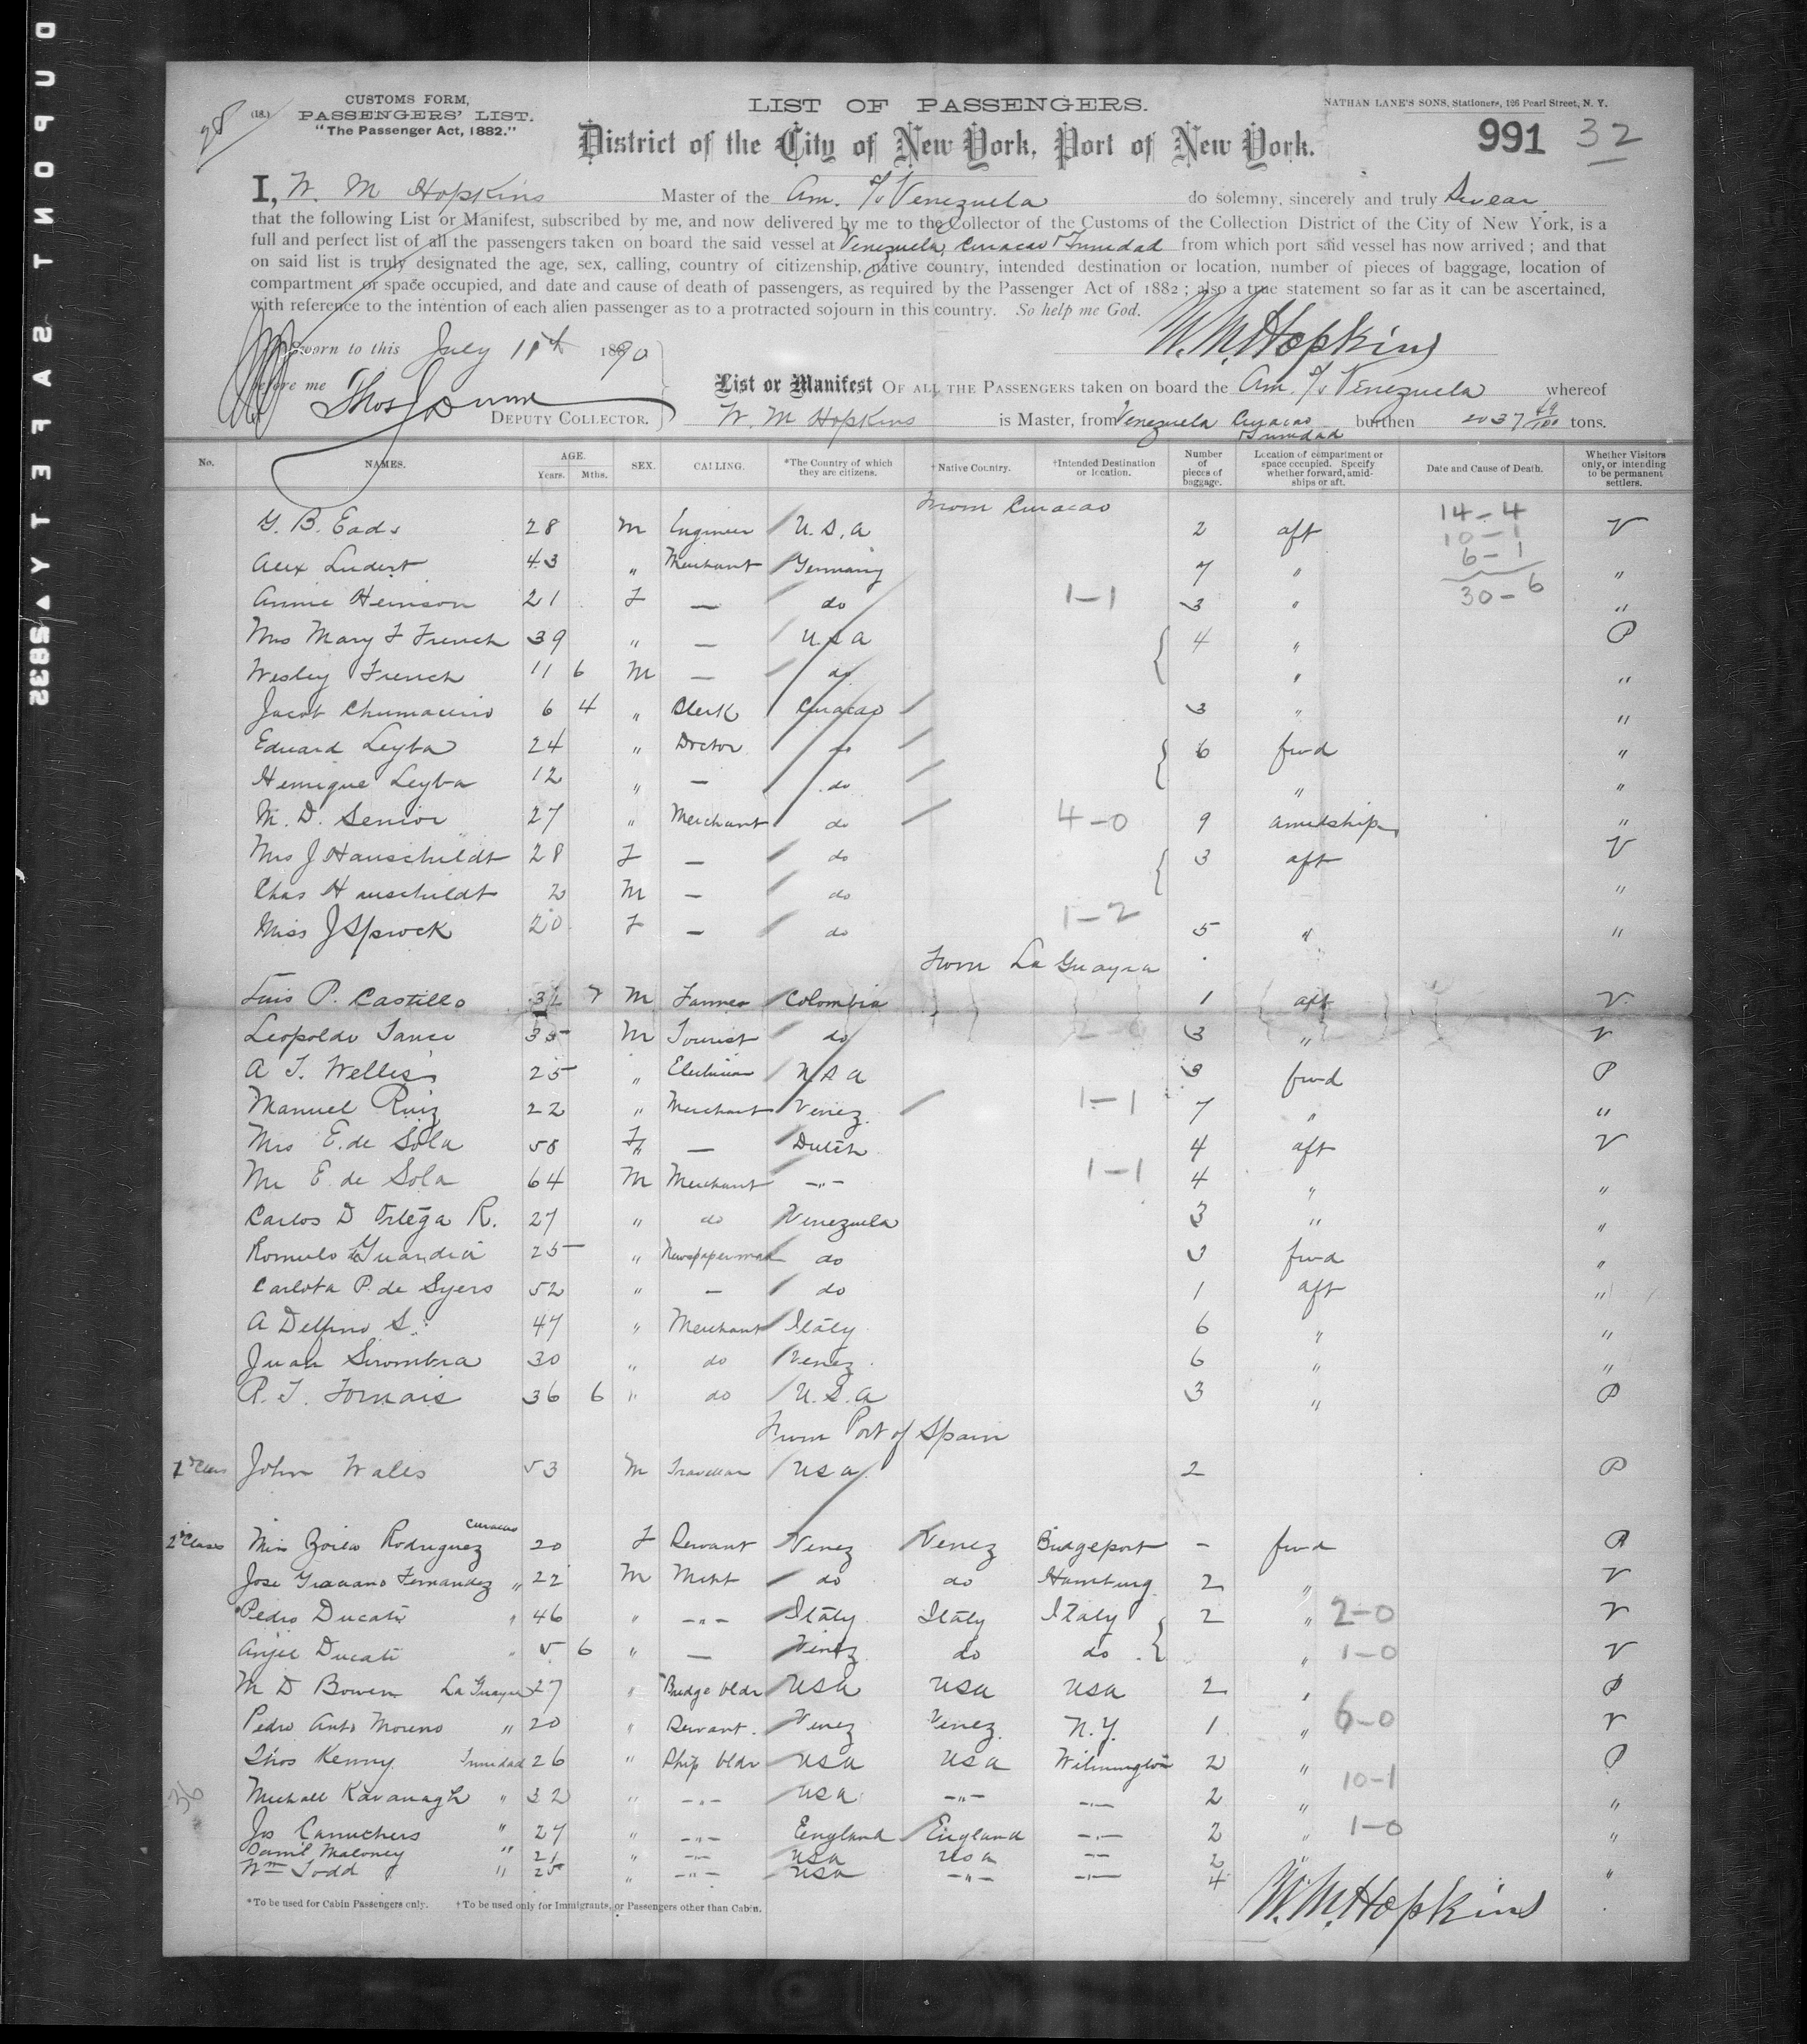 DUPONT SAFETY 5832
28
(18.)
CUSTOMS FORM,
PASSENGERS' LIST.
"The Passenger Act, 1882."
LIST OF PASSENGERS.
NATHAN LANE'S SONS, Stationers, 126 Pearl Street, N. Y.
District of the City of New York, Port of New York.
991 32
I, W. M Hopkins Master of the Am. S/S Venezuela do solemny, sincerely and truly Swear
that the following List or Manifest, subscribed by me, and now delivered by me to the Collector of the Customs of the Collection District of the City of New York, is a
full and perfect list of all the passengers taken on board the said vessel at Venezuela, Curacao & Trinidad from which port said vessel has now arrived; and that
on said list is truly designated the age, sex, calling, country of citizenship, native country, intended destination or location, number of pieces of baggage, location of
compartment or space occupied, and date and cause of death of passengers, as required by the Passenger Act of 1882; also a true statement so far as it can be ascertained,
with reference to the intention of each alien passenger as to a protracted sojourn in this country. So help me God.
W. M. Hopkins
Sworn to this July 11th 1890
before me Thos J Dunn
DEPUTY COLLECTOR.
List or Manifest OF ALL THE PASSENGERS taken on board the Am. S/S Venezuela whereof
W. M Hopkins is Master, from Venezuela Curacao & Trinidad burthen 2037 69/100 tons.
No. NAMES. AGE. Years. Mths. SEX. CALLING. *The Country of which they are citizens. †Native Country. †Intended Destination or location. Number of pieces of baggage. Location of compartment or space occupied. Specify whether forward, amidships or aft. Date and Cause of Death. Whether Visitors only, or intending to be permanent settlers.
From Curacao
G. B. Eads 28 M Engineer U.S.A 2 aft 14-4 V
10-1
Alex Ludert 43 " Merchant Germany 7 " 6-1 "
Annie Heinson 21 F — do 1-1 3 " 30-6 "
Mrs Mary F French 39 " — U.S.A 4 " P
Wesley French 11 6 M — do " "
Jacob Chumaceiro 6 4 " Clerk Curacao 3 " "
Eduard Leyba 24 " Doctor do 6 fwd "
Henrique Leyba 12 " — do " "
M. D. Senior 27 " Merchant do 4-0 9 amidships "
Mrs J Hauschildt 28 F — do 3 aft V
Chas Hauschildt 2 M — do "
Miss J Sprock 20 F — do 1-2 5 " "
From La Guayra
Luis P. Castillo 7 M Farmer Colombia 1 aft V
Leopoldo 35 M Tourist do 2-0 3 " V
A T. Wellis 25 " Electrician U.S.A 3 fwd P
Manuel Ruiz 22 " Merchant Venez. 1-1 7 " "
Mrs E. de Sola 58 F — Dutch 4 aft V
Mr E. de Sola 64 M Merchant -"- 1-1 4 " "
Carlos D Ortega R. 27 " do Venezuela 3 " "
Romulo Guardia 25 " Newspaperman do 3 fwd "
Carlota P. de Syers 52 " — do 1 aft "
A Delfino S. 47 " Merchant Italy 6 " "
Juan Sirombra 30 " do Venez. 6 " "
R. T. Fornais 36 6 " do U.S.A 3 " P
From Port of Spain
1st Class John Wales 53 M Traveller USA 2 P
2d Class Miss Zoila Rodriguez Curacao 20 F Servant Venez Venez Bridgeport - fwd P
Jose Graciano Fernandez " 22 M Mcht do do Hamburg 2 " V
Pedro Ducati " 46 " -"- Italy Italy Italy 2 " 2-0 V
Anjel Ducati " 5 6 " — Venez do do " 1-0 V
M D Bowen La Guayra 27 " Bridge bldr USA USA USA 2 " P
Pedro Anto Moreno " 20 " Servant. Venez Venez. N.Y. 1 " 6-0 V
Thos Kenny Trinidad 26 " Ship bldr USA USA Wilmington 2 " P
36 Michael Kavanagh " 32 " -"- USA -"- -"- 2 " 10-1 "
Jos Carruthers " 27 " -"- England England -"- 2 " 1-0 "
Daniel Maloney " 21 " -"- USA USA -"- 2 "
Wm Todd " 25 " -"- USA -"- -"- 4 "
W. M. Hopkins
*To be used for Cabin Passengers only. †To be used only for Immigrants, or Passengers other than Cabin.